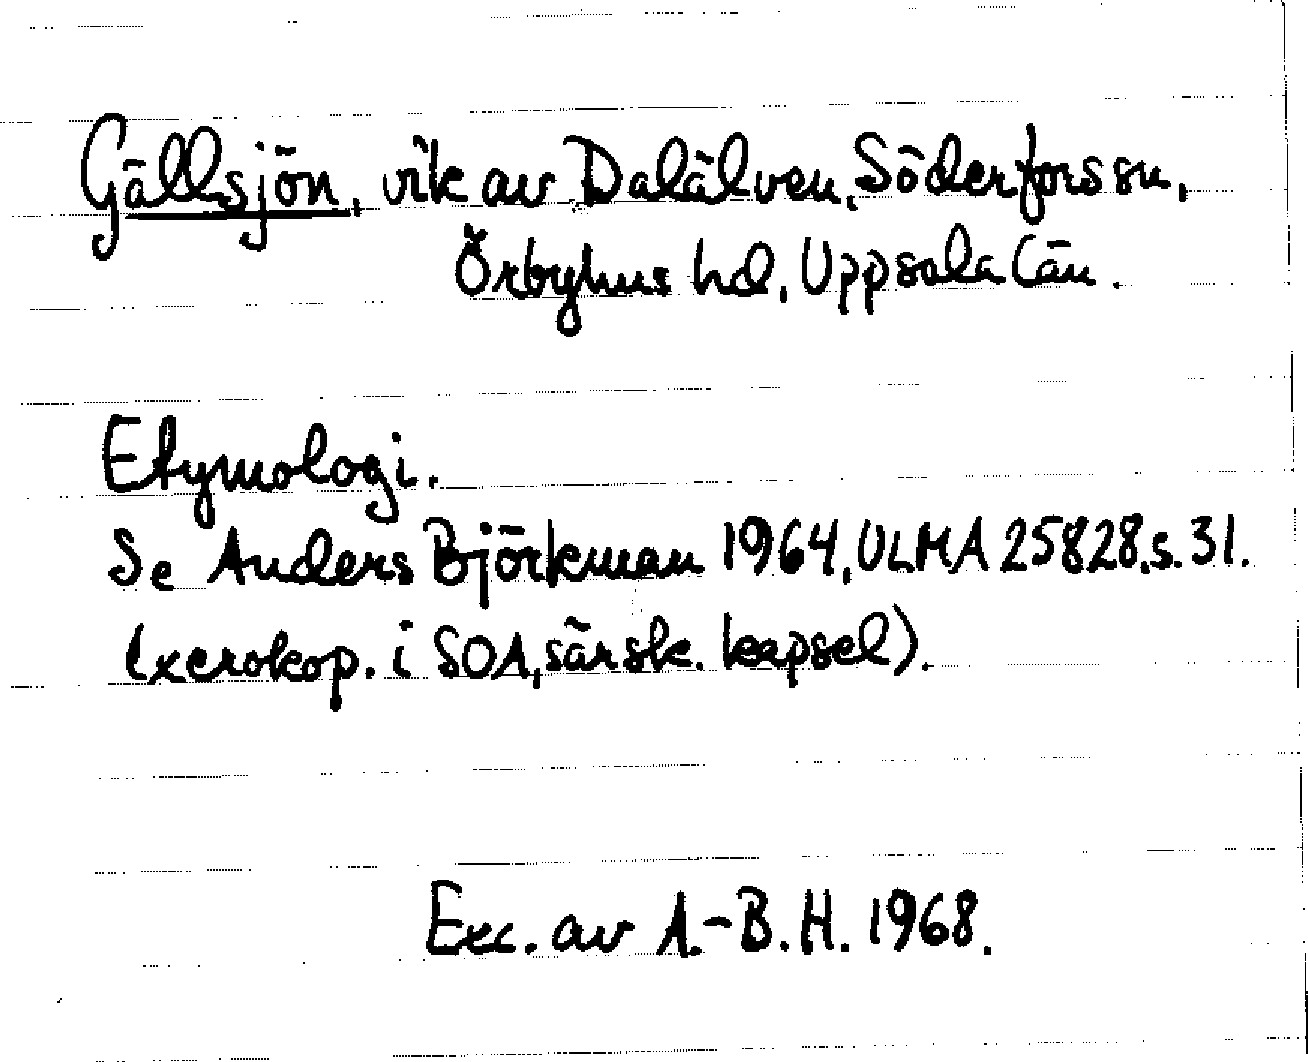 Gällsjön, vik av Dalälven, Söderfors sn,
Örbyhus hd, Uppsala län.
Etymologi.
Se Anders Björkman 1964, ULMA 25828, s. 31.
(xerokop. i SOA, särsk. kapsel).
Exc. av A.-B. H. 1968.